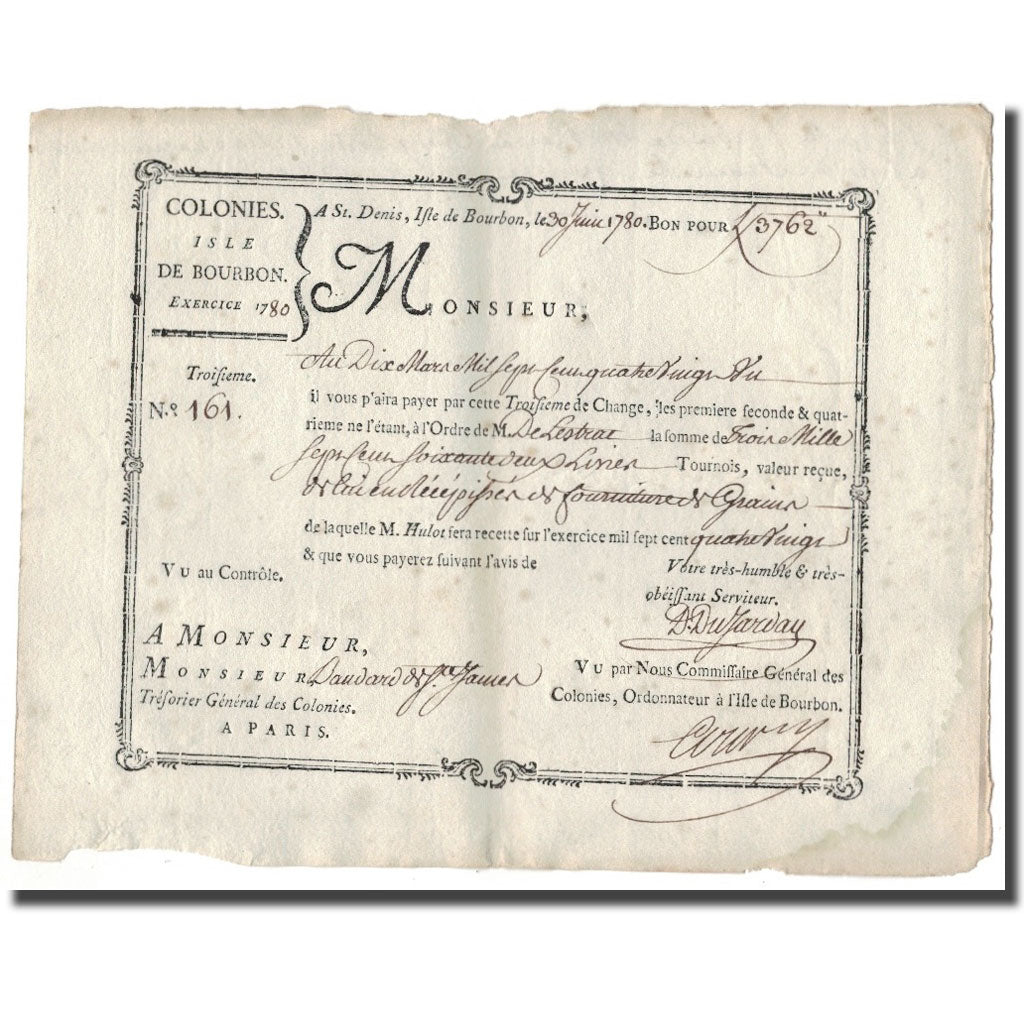 COLONIES.
ISLE
DE BOURBON.
EXERCICE 1780
A St. Denis, Isle de Bourbon, le 30 Juin 1780. BON POUR L 3762"
MONSIEUR,
Troisieme.
N.º 161.
Au Dix Mars Mil Sept Cent quatre Vingt Un
il vous p'aira payer par cette Troisieme de Change, les premiere seconde & quat-
rieme ne l'étant, à l'Ordre de M. De Lestrac la somme de Trois Mille
Sept Cent Soixante deux Livres Tournois, valeur reçue,
en Récépissés de fourniture de Grains
de laquelle M. Hulot fera recette sur l'exercice mil sept cent quatre Vingt
& que vous payerez suivant l'avis de
Votre très-humble & très-
obéissant Serviteur.
VU au Contrôle.
A MONSIEUR,
MONSIEUR Baudard de Ste. James
Trésorier Général des Colonies.
A PARIS.
VU par Nous Commissaire Général des
Colonies, Ordonnateur à l'Isle de Bourbon.